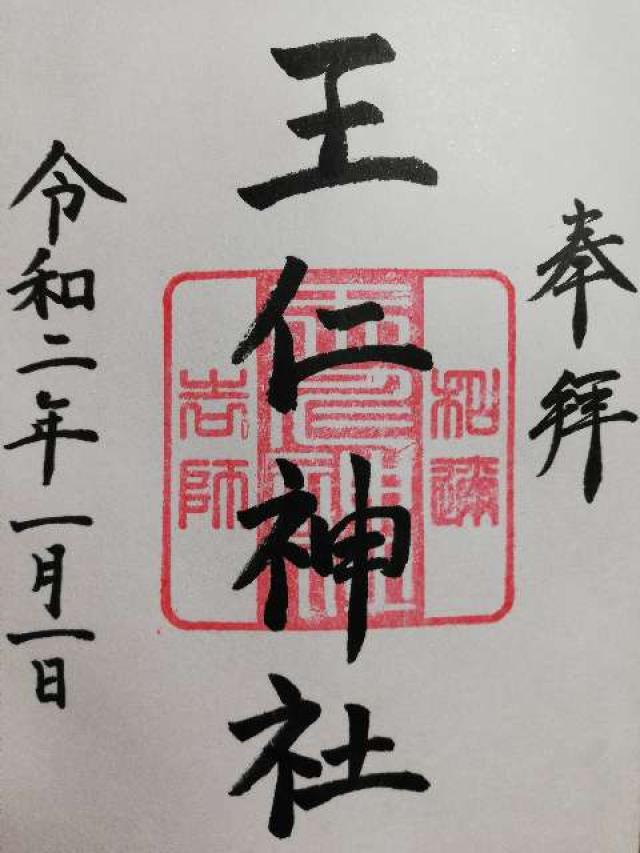 奉拝
王仁神社
令和二年一月一日